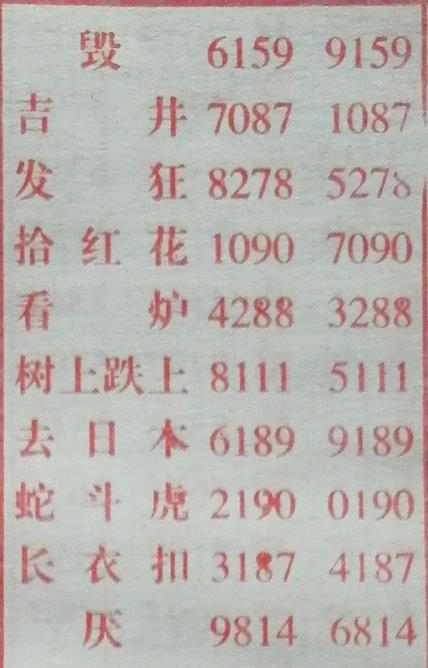 毁 6159 9159
吉井 7087 1087
发狂 8278 5278
拾红花 1090 7090
看炉 4288 3288
树上跌上 8111 5111
去日本 6189 9189
蛇斗虎 2190 0190
长衣扣 3187 4187
厌 9814 6814